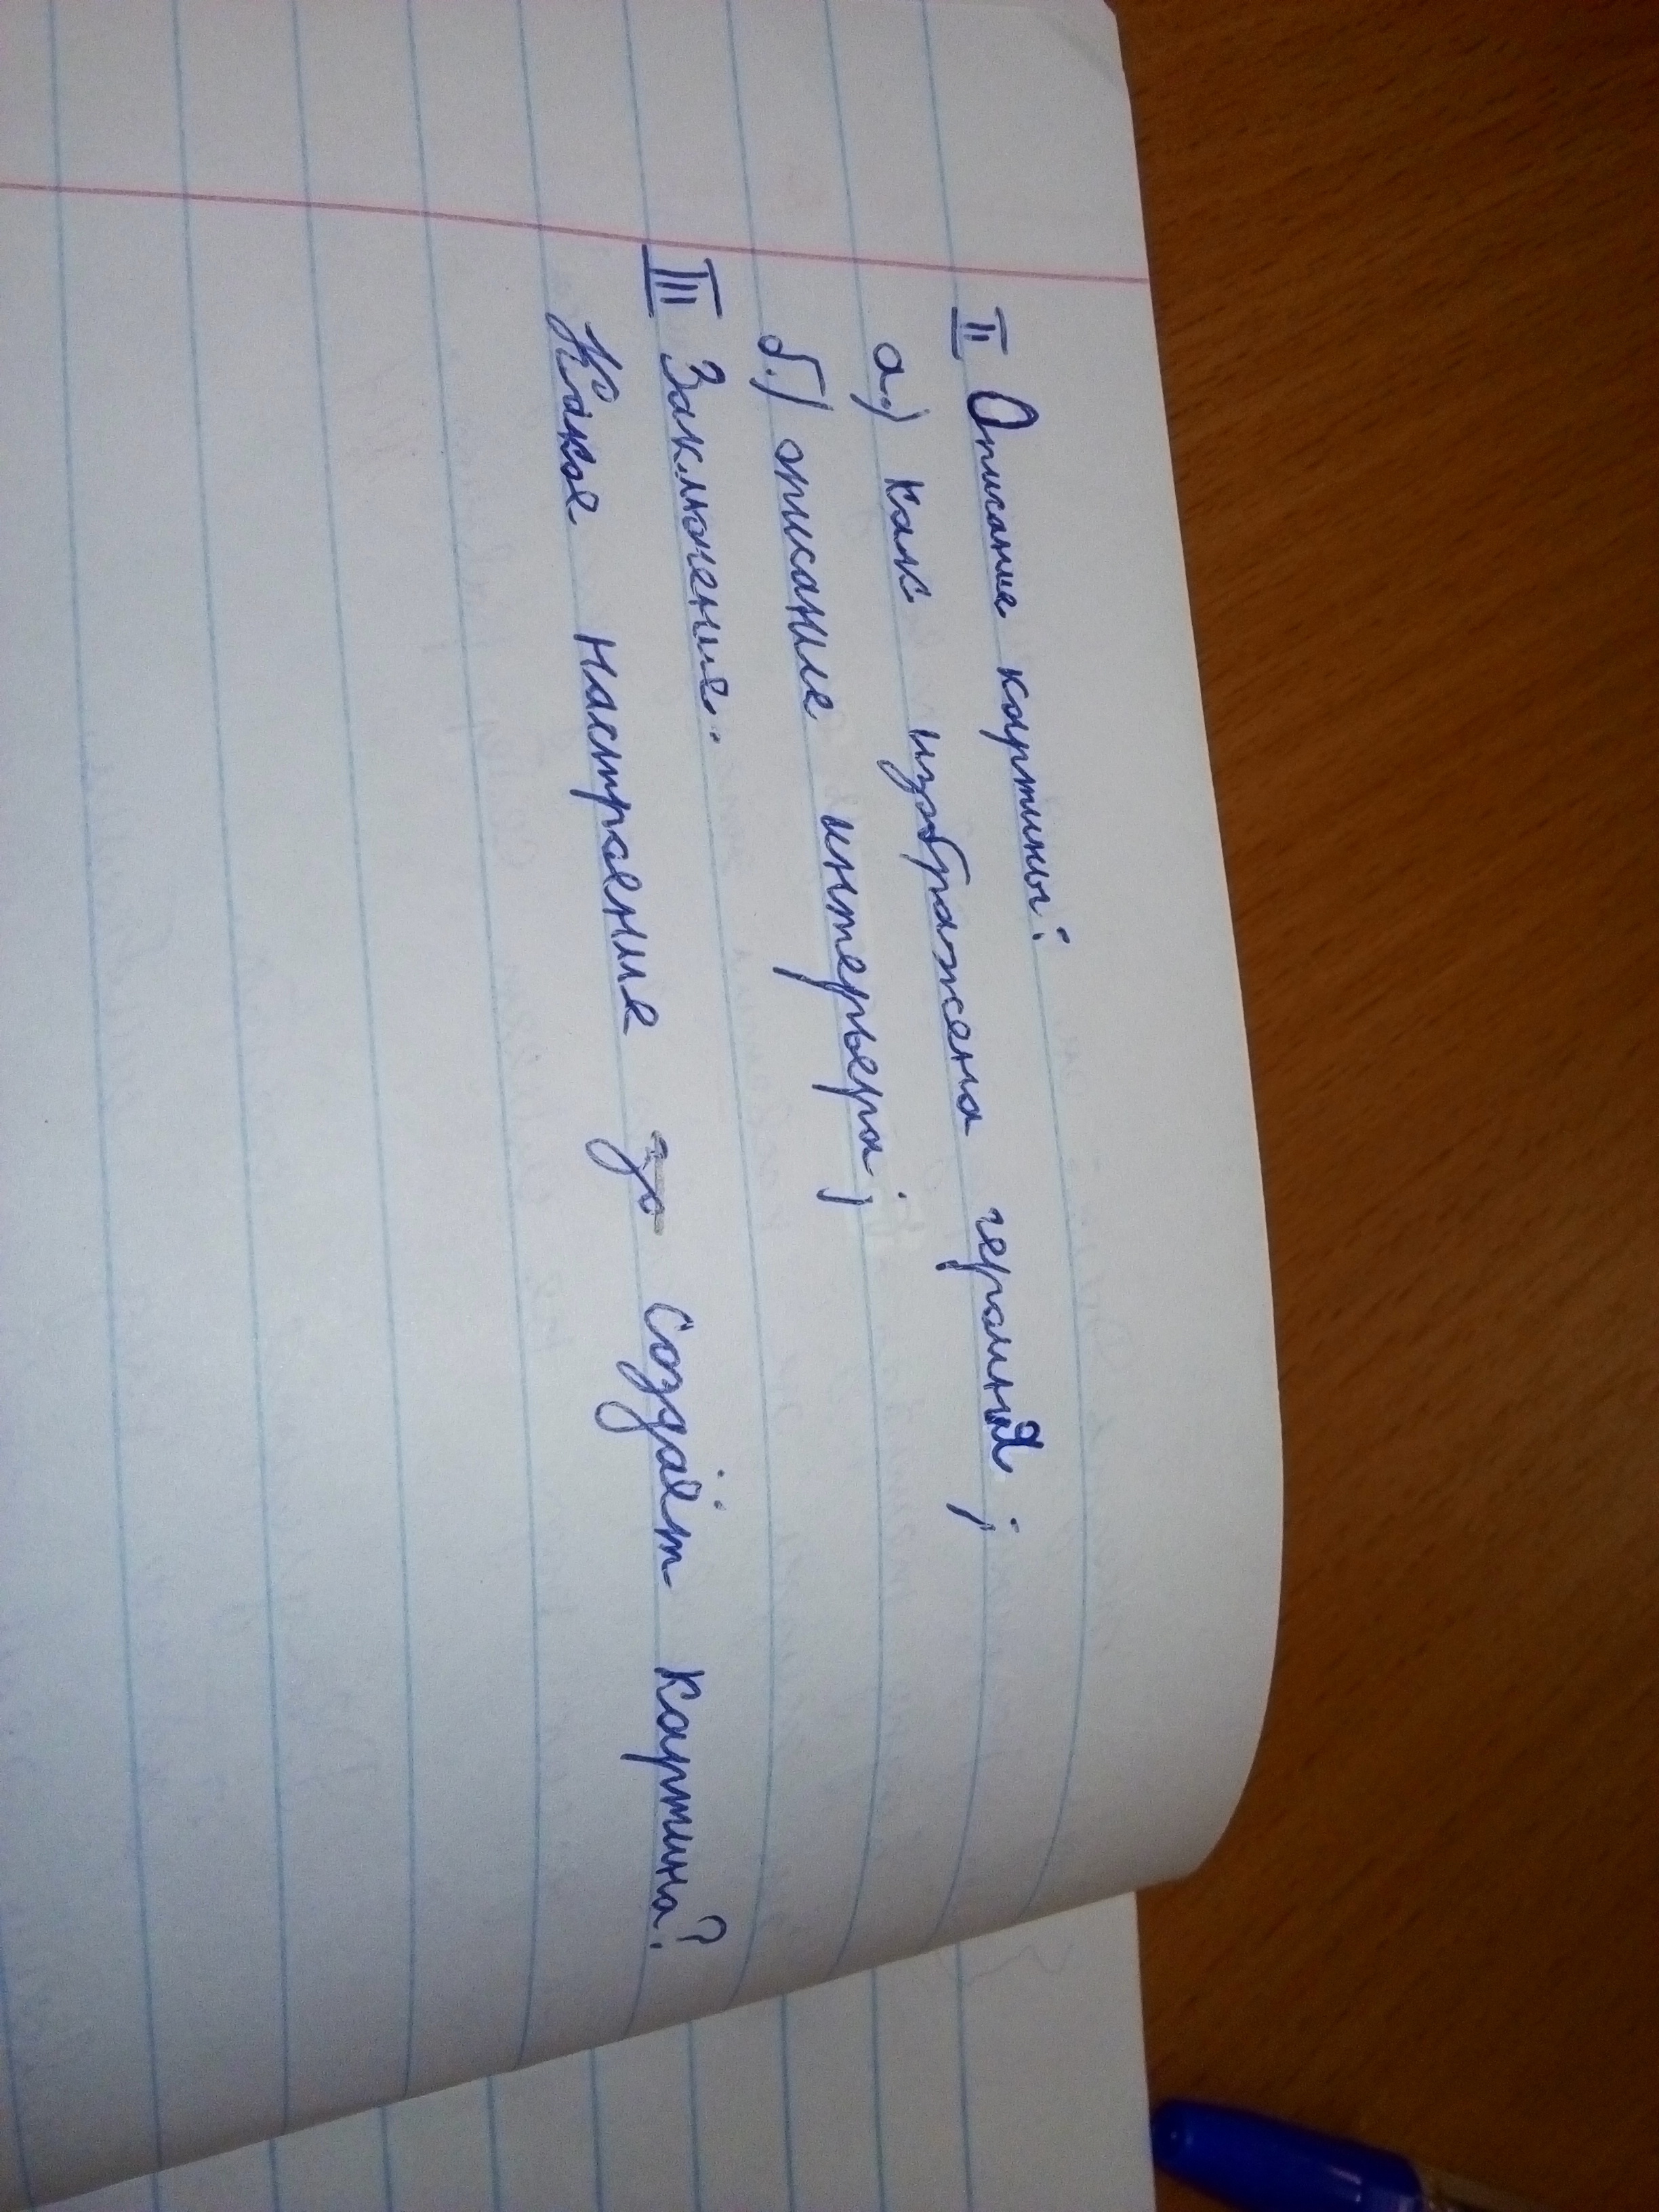 II Описание картины:
а.) как изображена героиня;
б.) описание интерьера;
III Заключение.
Какое настроение создаёт картина?